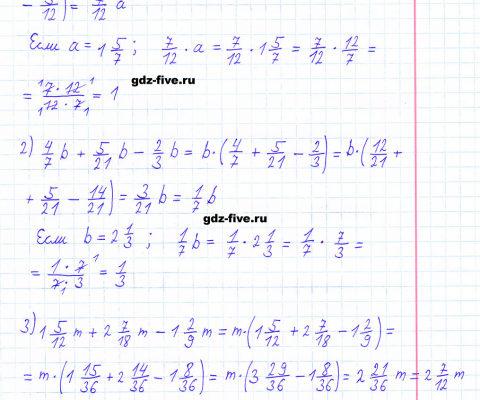 - 5/12) = 7/12 a
Если a = 1 5/7 ; 7/12 · a = 7/12 · 1 5/7 = 7/12 · 12/7 =
gdz-five.ru
= 7 · 12 / 12 · 7 = 1
2) 4/7 b + 5/21 b - 2/3 b = b · (4/7 + 5/21 - 2/3) = b · (12/21 +
+ 5/21 - 14/21) = 3/21 b = 1/7 b
gdz-five.ru
Если b = 2 1/3 ; 1/7 b = 1/7 · 2 1/3 = 1/7 · 7/3 =
= 1 · 7 / 7 · 3 = 1/3
3) 1 5/12 m + 2 7/18 m - 1 2/9 m = m · (1 5/12 + 2 7/18 - 1 2/9) =
= m · (1 15/36 + 2 14/36 - 1 8/36) = m · (3 29/36 - 1 8/36) = 2 21/36 m = 2 7/12 m